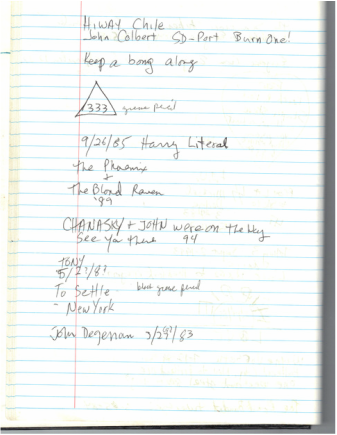 HiWAY Chile
John Colbert SD-Port Burn One!
Keep a bong along
333 grease pencil
9/26/85 Harry Literal
The Phoenix
+
The Blond Raven
'89
CHANASKY + JOHN were on the way
See you there 94
TONY
To Settle - blue grease pencil
- New York
John 83